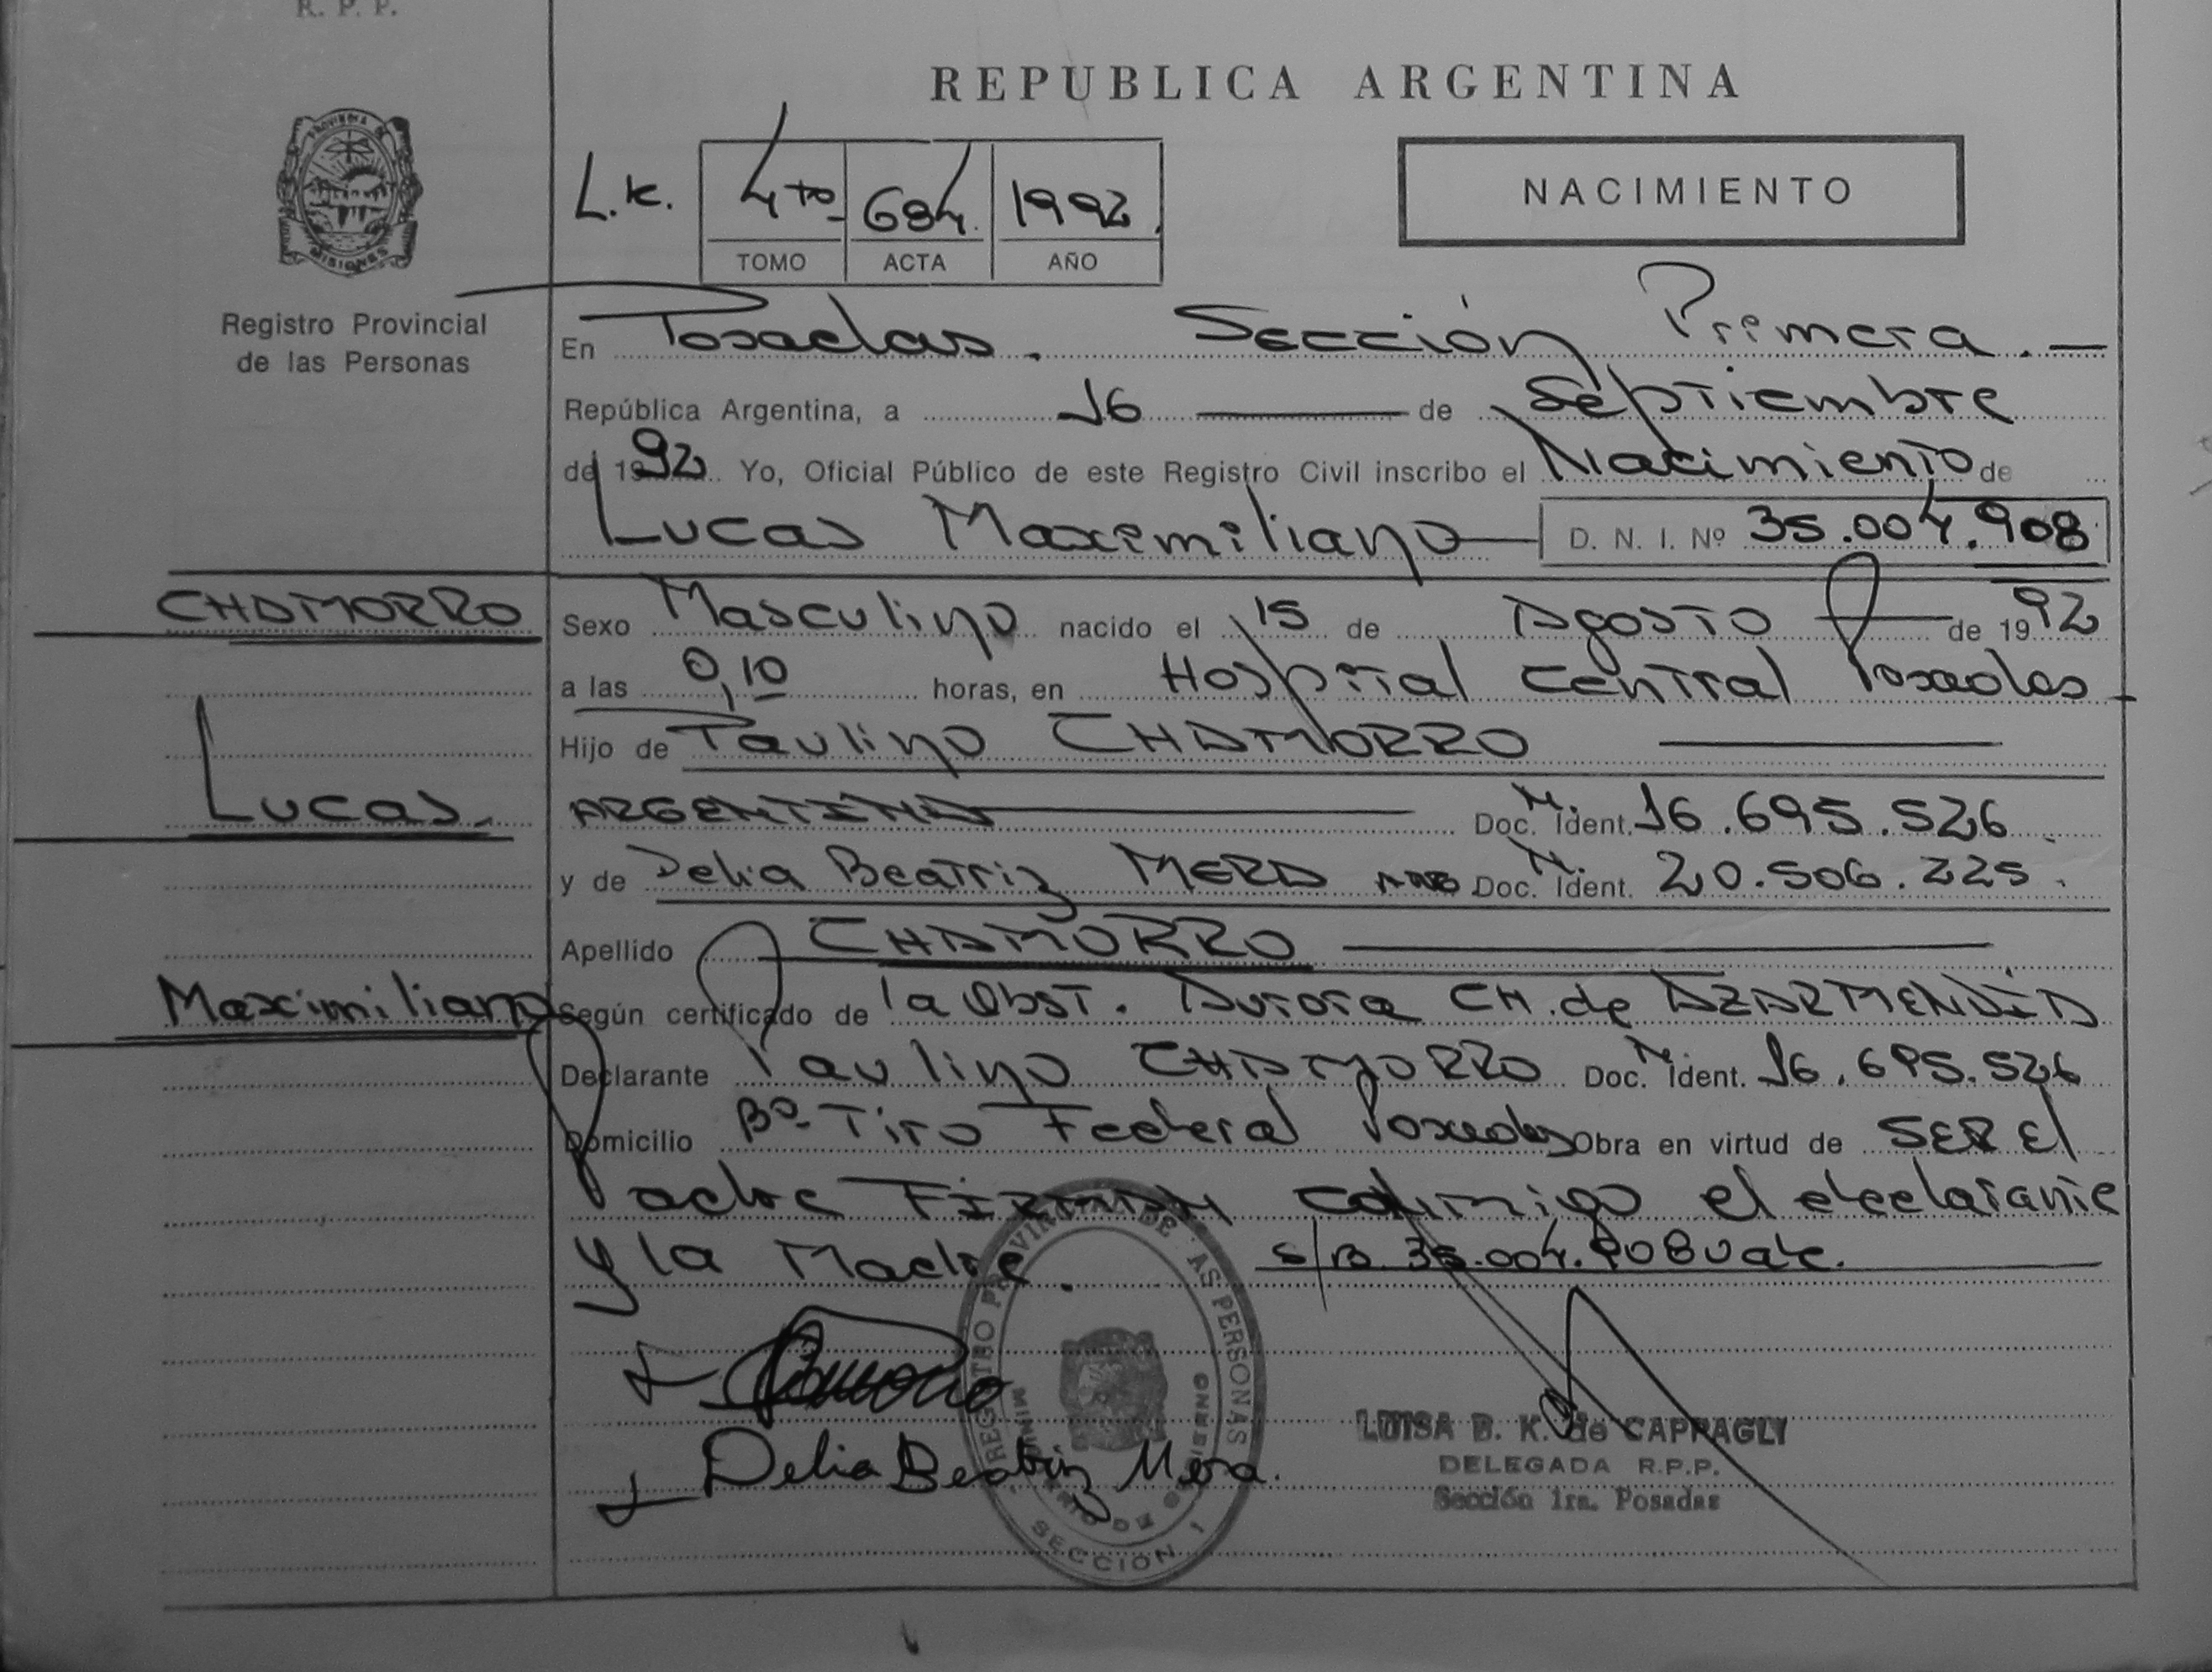 R. P. P.
REPUBLICA ARGENTINA
PROVINCIA DE MISIONES
L.K. 4to 684 1992
TOMO ACTA AÑO
NACIMIENTO
Registro Provincial
de las Personas
En Posadas. Sección Primera.—
República Argentina, a 16 — de Septiembre
de 1992 Yo, Oficial Público de este Registro Civil inscribo el Nacimiento de
Lucas Maximiliano — D. N. I. Nº 35.004.908
CHAMORRO
Sexo Masculino nacido el 15 de Agosto — de 1992
a las 0,10 horas, en Hospital Central Posadas
Hijo de Paulino CHAMORRO —
Lucas.
ARGENTINA — Doc. N. Ident. 16.695.526
y de Delia Beatriz MERA ARG Doc. N. Ident. 20.506.225.
Apellido CHAMORRO —
Maximiliano
Según certificado de la Obst. Aurora CH. de AZARMENDIA
Declarante Paulino CHAMORRO Doc. N. Ident. 16.695.526
Domicilio Bº Tiro Federal Posadas Obra en virtud de SER El
Padre FIRMAN conmigo el declarante
y la Madre. s/B. 35.004.908 Vale.
REGISTRO PROVINCIAL DE LAS PERSONAS
MINISTERIO DE GOBIERNO
SECCION 1
Delia Beatriz Mera.
LUISA B. K. de CAPPAGLY
DELEGADA R.P.P.
Sección 1ra. Posadas